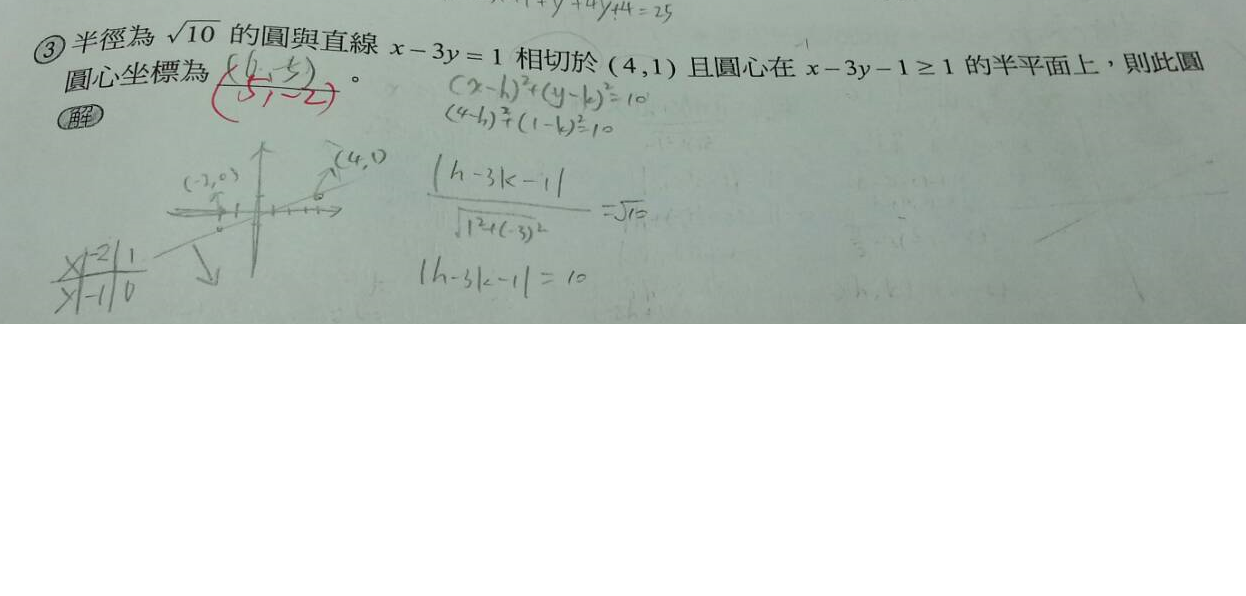 +y²+4y+4=25
③ 半徑為 √10 的圓與直線 x－3y＝1 相切於 (4,1) 且圓心在 x－3y－1≥1 的半平面上，則此圓
圓心坐標為 (5,-2) 。
(x-h)²+(y-k)²=10
(4-h)²+(1-k)²=10
解
(4,1)
|h-3k-1|
√1²+(-3)²
=√10
|h-3k-1|=10
x -2 1
y -1 0